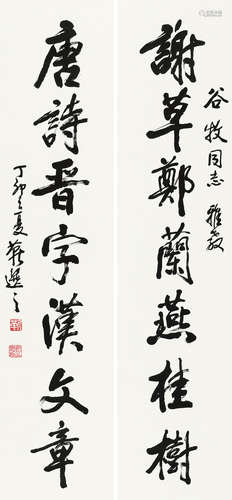 谷牧同志雅教
謝草鄭蘭燕桂樹
唐詩晋字漢文章
丁卯之夏蔣遜之